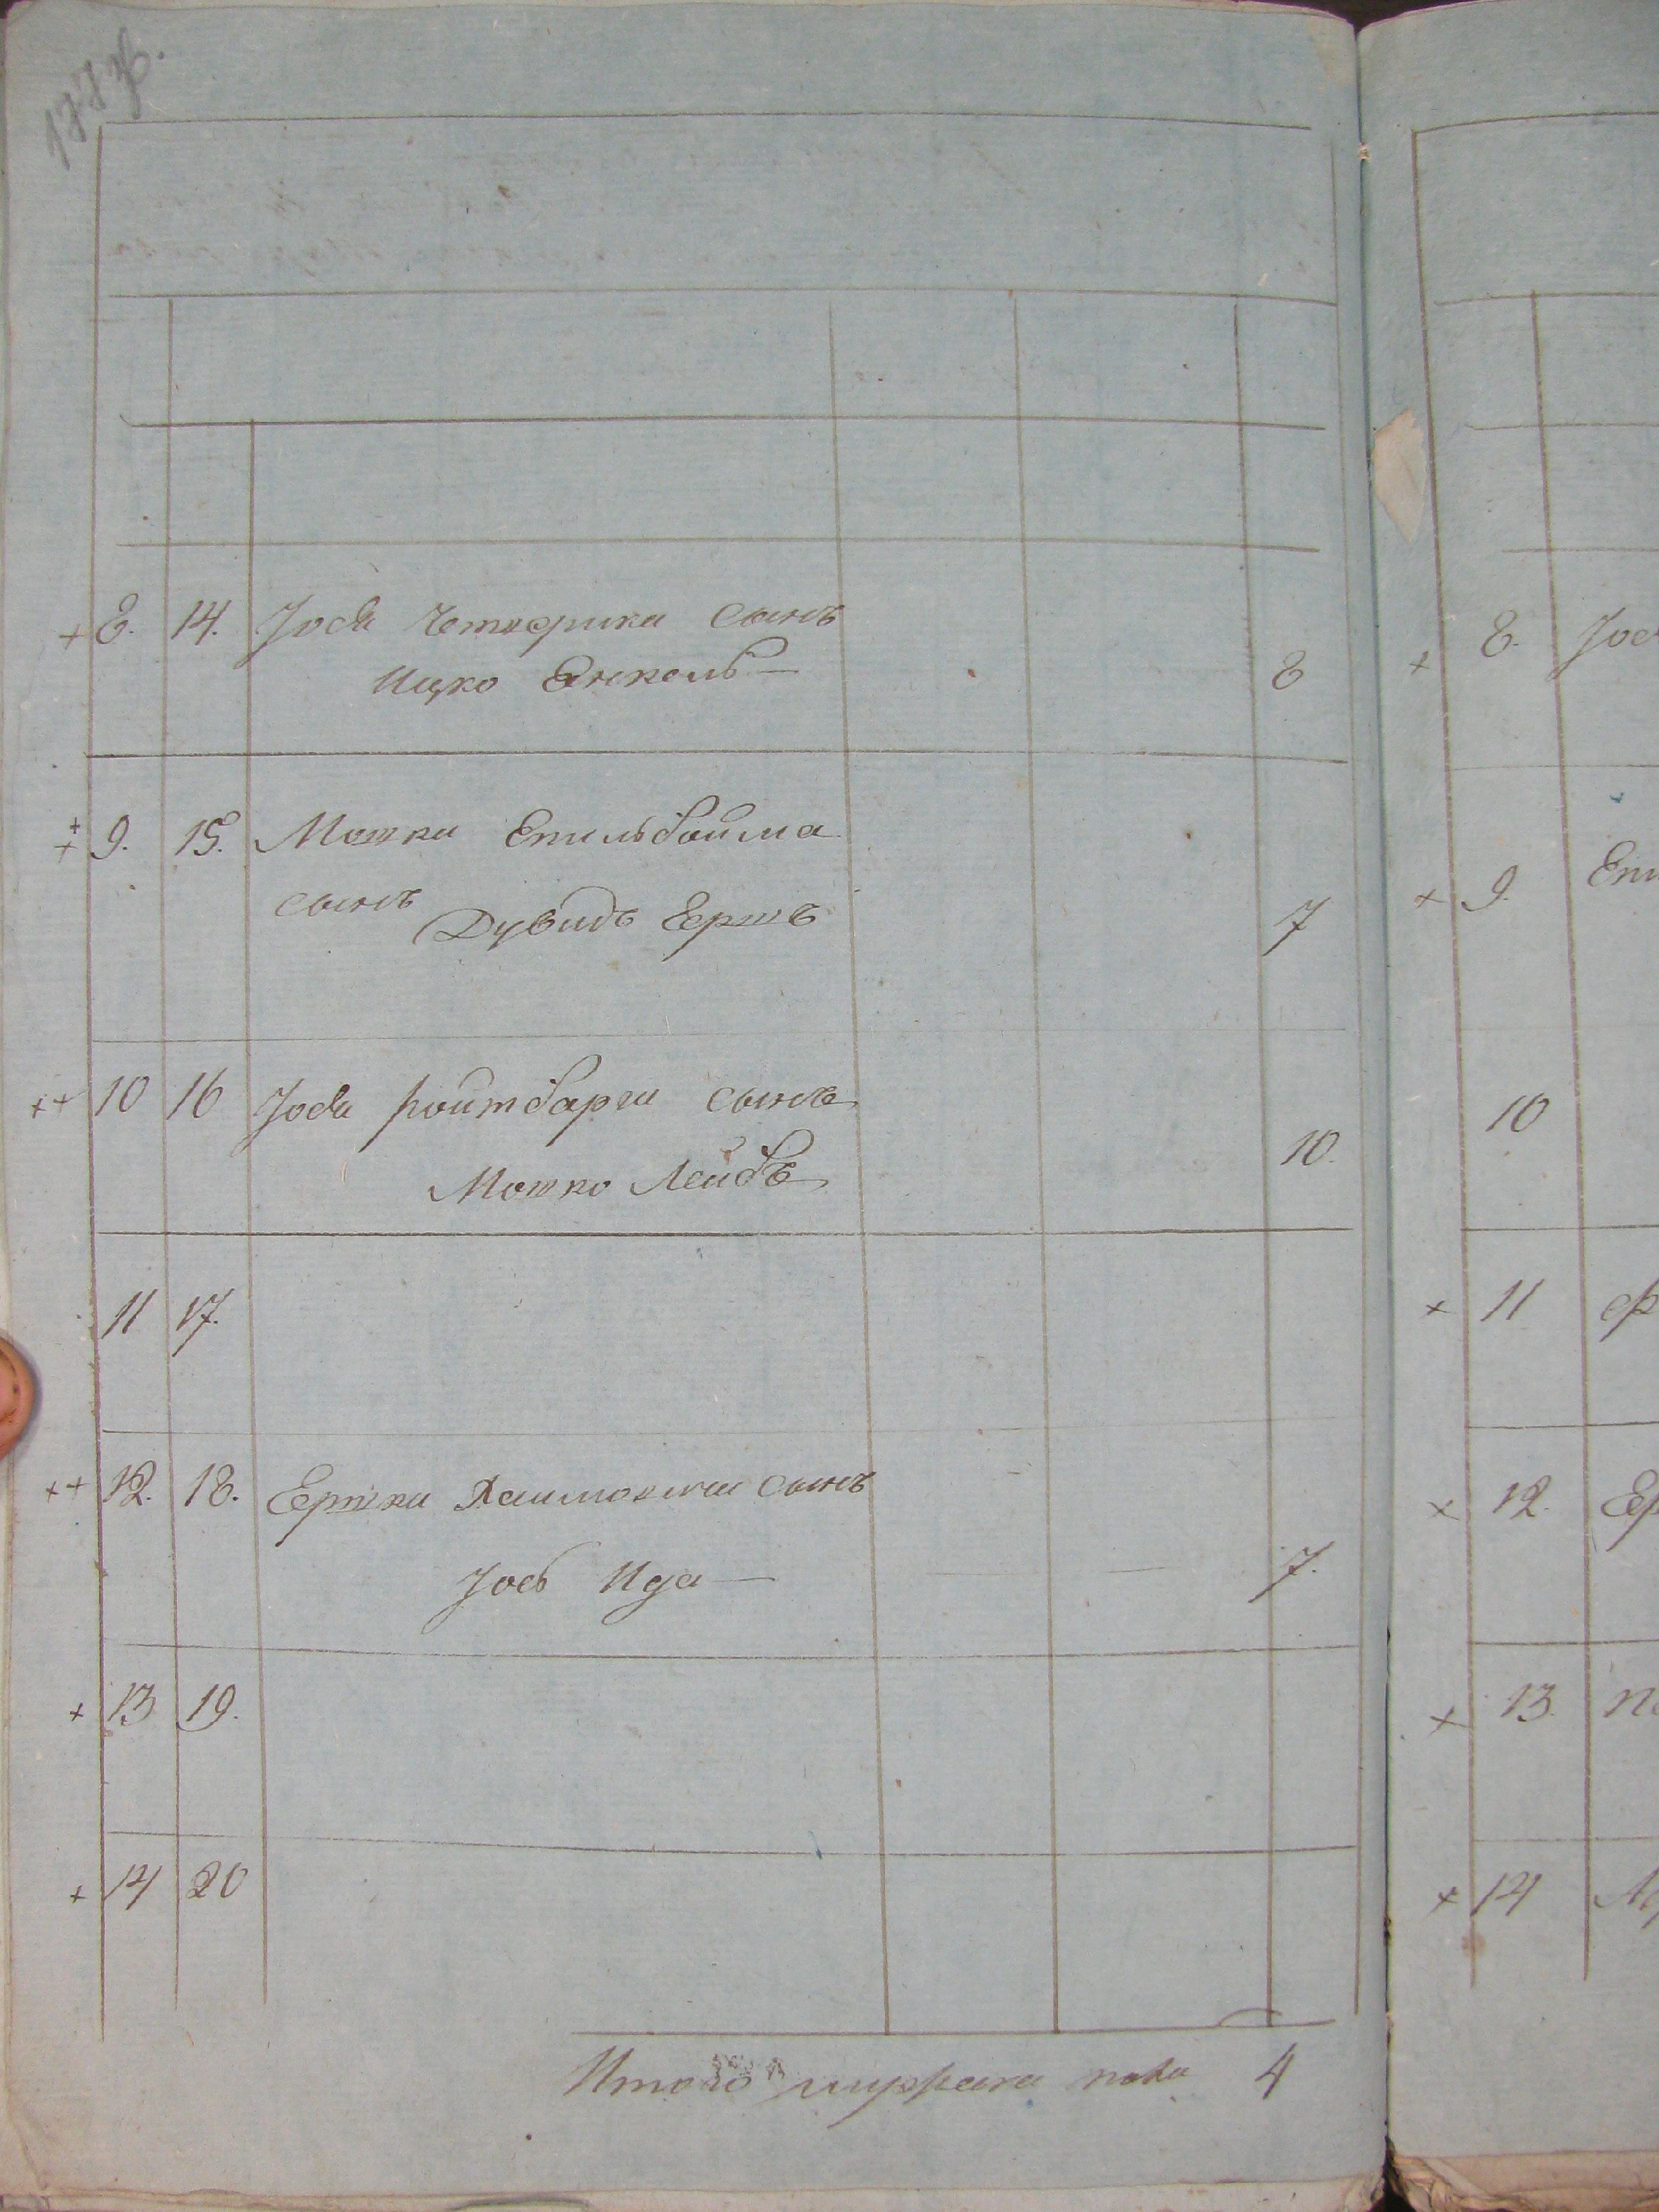 + 8. 14. Іося Четверика сынъ
Ицко Янкель — 8
+ + 9. 15. Мошки Епильбойма
сынъ Дувидъ Ершъ 7
++ 10 16 Іося Ройтбарга сынъ
Мошко Лейбъ 10.
11 17.
++ 12. 18. Ершки Хаимовича сынъ
Іось Ида — 7.
+ 13 19.
+ 14 20
Итого мужеска пола 4
+ 8.
+ 9.
10
+ 11
+ 12. Ер
+ 13.
+ 14